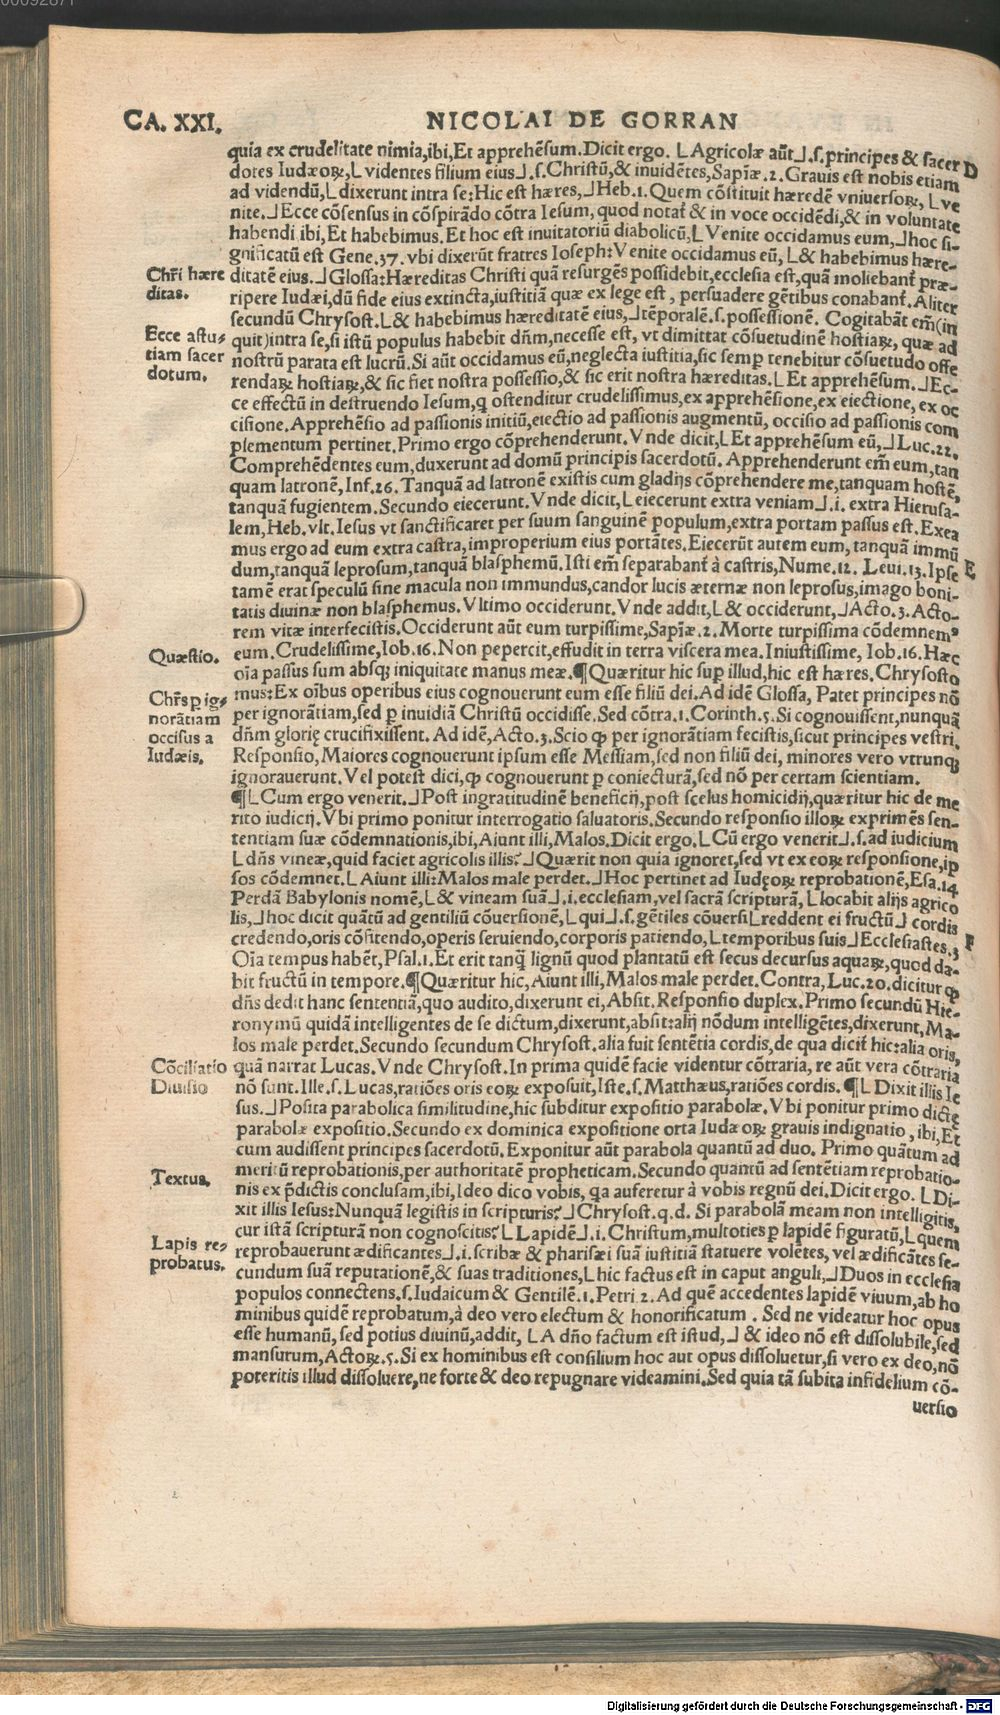 CA. XXI.
NICOLAI DE GORRAN
quia ex crudelitate nimia,ibi,Et apprehẽsum.Dicit ergo. ⌊Agricolæ aũt⌋.ſ.principes & ſacer D
dotes Iudæoꝝ,⌊videntes filium eius⌋.ſ.Chriſtũ,& inuidẽtes,Sapiæ.2.Grauis eſt nobis etiam
ad videndũ,⌊dixerunt intra ſe:Hic eſt hæres,⌋Heb.1.Quem cõſtituit hæredẽ vniuerſoꝝ,⌊ve
nite.⌋Ecce cõſenſus in cõſpirãdo cõtra Ieſum,quod notat᷑ & in voce occidẽdi,& in voluntate
habendi ibi,Et habebimus.Et hoc eſt inuitatoriũ diabolicũ,⌊Venite occidamus eum,⌋hoc ſi-
gnificatũ eſt Gene.37.vbi dixerũt fratres Ioſeph:Venite occidamus eũ,⌊& habebimus hære-
Chr̃i hære ditatẽ eius.⌋Gloſſa:Hæreditas Chriſti quã reſurgẽs poſſidebit,eccleſia eſt,quã moliebant᷑ præ-
ditas. ripere Iudæi,dũ fide eius extincta,iuſtitiã quæ ex lege eſt, perſuadere gẽtibus conabant᷑.Aliter
ſecundũ Chryſoſt.⌊& habebimus hæreditatẽ eius,⌋tẽporalẽ.ſ.poſſeſſionẽ. Cogitabãt em̃(in
Ecce aſtu- quit)intra ſe,ſi iſtũ populus habebit dñm,neceſſe eſt, vt dimittat cõſuetudinẽ hoſtiaꝝ, quæ ad
tiam ſacer noſtrũ parata eſt lucrũ.Si aũt occidamus eũ,neglecta iuſtitia,ſic ſemꝑ tenebitur cõſuetudo offe
dotum. rendaꝝ hoſtiaꝝ,& ſic fiet noſtra poſſeſſio,& ſic erit noſtra hæreditas.⌊Et apprehẽſum.⌋Ec-
ce effectũ in deſtruendo Ieſum,ꝗ oſtenditur crudeliſſimus,ex apprehẽſione,ex eiectione, ex oc
ciſione.Apprehẽſio ad paſſionis initiũ,eiectio ad paſſionis augmentũ, occiſio ad paſſionis com
plementum pertinet.Primo ergo cõprehenderunt.Vnde dicit,⌊Et apprehẽſum eũ,⌋Luc.22.
Comprehẽdentes eum,duxerunt ad domũ principis ſacerdotũ. Apprehenderunt em̃ eum,tan
quam latronẽ,Inf.26.Tanquã ad latronẽ exiſtis cum gladijs cõprehendere me,tanquam hoſtẽ,
tanquã fugientem.Secundo eiecerunt.Vnde dicit,⌊eiecerunt extra veniam⌋.i.extra Hieruſa-
lem,Heb.vlt.Ieſus vt ſanctificaret per ſuum ſanguinẽ populum,extra portam paſſus eſt.Exea
mus ergo ad eum extra caſtra,improperium eius portãtes.Eiecerũt autem eum,tanquã immũ
dum,tanquã leproſum,tanquã blaſphemũ.Iſti em̃ ſeparabant᷑ à caſtris,Nume.12. Leui.13.Ipſe E
tamẽ erat ſpeculũ ſine macula non immundus,candor lucis æternæ non leproſus,imago boni-
tatis diuinæ non blaſphemus.Vltimo occiderunt.Vnde addit,⌊& occiderunt,⌋Acto.3.Acto-
rem vitæ interfeciſtis.Occiderunt aũt eum turpiſſime,Sapiæ.2.Morte turpiſſima cõdemnemꝰ
Quæſtio. eum.Crudeliſſime,Iob.16.Non pepercit,effudit in terra viſcera mea.Iniuſtiſſime, Iob.16.Hæc
oĩa paſſus ſum abſqꝫ iniquitate manus meæ.¶Quæritur hic ſuꝑ illud,hic eſt hæres. Chryſoſto
Chr̃s ꝑ ig- mus:Ex oĩbus operibus eius cognouerunt eum eſſe filiũ dei.Ad idẽ Gloſſa, Patet principes nõ
norãtiam per ignorãtiam,ſed ꝑ inuidiã Chriſtũ occidiſſe.Sed cõtra.1.Corinth.5.Si cognouiſſent,nunquã
occiſus a dñm glorię crucifixiſſent.Ad idẽ,Acto.3.Scio ꝙ per ignorãtiam feciſtis,ſicut principes veſtri.
Iudæis. Reſponſio,Maiores cognouerunt ipſum eſſe Meſſiam,ſed non filiũ dei, minores vero vtrunqꝫ
ignorauerunt.Vel poteſt dici,ꝙ cognouerunt ꝑ coniecturã,ſed nõ per certam ſcientiam.
¶⌊Cum ergo venerit.⌋Poſt ingratitudinẽ beneficij,poſt ſcelus homicidij,quæritur hic de me
rito iudicij.Vbi primo ponitur interrogatio ſaluatoris.Secundo reſponſio illoꝝ exprimẽs ſen-
tentiam ſuæ cõdemnationis,ibi,Aiunt illi,Malos.Dicit ergo.⌊Cũ ergo venerit⌋.ſ.ad iudicium
⌊dñs vineæ,quid faciet agricolis illis?⌋Quærit non quia ignoret,ſed vt ex eoꝝ reſponſione,ip
ſos cõdemnet.⌊Aiunt illi:Malos male perdet.⌋Hoc pertinet ad Iudęoꝝ reprobationẽ,Eſa.14
Perdã Babylonis nomẽ,⌊& vineam ſuã⌋.i.eccleſiam,vel ſacrã ſcripturã,⌊locabit alijs agrico
lis,⌋hoc dicit quãtũ ad gentiliũ cõuerſionẽ,⌊qui⌋.ſ.gẽtiles cõuerſi⌊reddent ei fructũ⌋ cordis
credendo,oris cõfitendo,operis ſeruiendo,corporis patiendo,⌊temporibus ſuis⌋Eccleſiaſtes.3 F
Oĩa tempus habẽt,Pſal.1.Et erit tanꝗ̃ lignũ quod plantatũ eſt ſecus decurſus aquaꝝ,quod da-
bit fructũ in tempore.¶Quæritur hic,Aiunt illi,Malos male perdet.Contra,Luc.20.dicitur ꝙ
dñs dedit hanc ſententiã,quo audito,dixerunt ei,Abſit.Reſponſio duplex.Primo ſecundũ Hie-
ronymũ quidã intelligentes de ſe dictum,dixerunt,abſit:alij nõdum intelligẽtes,dixerunt,Ma-
los male perdet.Secundo ſecundum Chryſoſt.alia fuit ſentẽtia cordis,de qua dicit᷑ hic:alia oris,
Cõciliatio quã narrat Lucas.Vnde Chryſoſt.In prima quidẽ facie videntur cõtraria, re aũt vera cõtraria
Diuiſio nõ ſunt.Ille.ſ.Lucas,ratiões oris eoꝝ expoſuit,Iſte.ſ.Matthæus,ratiões cordis.¶⌊Dixit illis Ie
ſus.⌋Poſita parabolica ſimilitudine,hic ſubditur expoſitio parabolæ.Vbi ponitur primo dictę
parabolæ expoſitio.Secundo ex dominica expoſitione orta Iudæoꝝ grauis indignatio, ibi,Et
cum audiſſent principes ſacerdotũ.Exponitur aũt parabola quantũ ad duo. Primo quãtum ad
Textus. meritũ reprobationis,per authoritatẽ propheticam.Secundo quantũ ad ſentẽtiam reprobatio-
nis ex p̃dictis concluſam,ibi,Ideo dico vobis, qa auferetur à vobis regnũ dei.Dicit ergo. ⌊Di-
xit illis Ieſus:Nunquã legiſtis in ſcripturis?⌋Chryſoſt.q.d. Si parabolã meam non intelligitis,
cur iſtã ſcripturã non cognoſcitis?⌊Lapidẽ⌋.i.Chriſtum,multoties ꝑ lapidẽ figuratũ,⌊quem
Lapis re- reprobauerunt ædificantes⌋.i.ſcribæ & phariſæi ſuã iuſtitiã ſtatuere volẽtes, vel ædificãtes ſe-
probatus. cundum ſuã reputationẽ,& ſuas traditiones,⌊hic factus eſt in caput anguli,⌋Duos in eccleſia
populos connectens.ſ.Iudaicum & Gentilẽ.1.Petri 2.Ad quẽ accedentes lapidẽ viuum,ab ho
minibus quidẽ reprobatum,à deo vero electum & honorificatum . Sed ne videatur hoc opus
eſſe humanũ,ſed potius diuinũ,addit, ⌊A dño factum eſt iſtud,⌋ & ideo nõ eſt diſſolubile,ſed
manſurum,Actoꝝ.5.Si ex hominibus eſt conſilium hoc aut opus diſſoluetur,ſi vero ex deo,nõ
poteritis illud diſſoluere,ne forte & deo repugnare videamini.Sed quia tã ſubita infidelium cõ-
uerſio
Digitalisierung gefördert durch die Deutsche Forschungsgemeinschaft - DFG